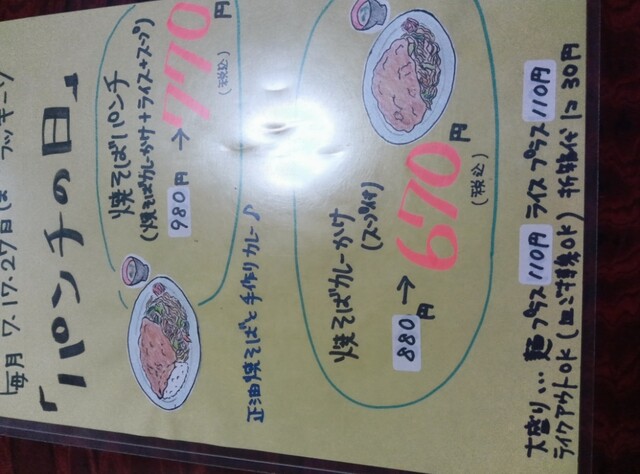 毎月 7.17.27日は
「パンチの日」
焼そばパンチ
(焼そばカレーかけ+ライス+スープ)
980円 → 770円
(税込)
正油焼そばと手作りカレー♪
焼そばカレーかけ
(スープ付)
880円 → 670円
(税込)
大盛り... 麺プラス110円 ライスプラス110円
テイクアウトOK(皿ご持参OK) 折箱代に30円